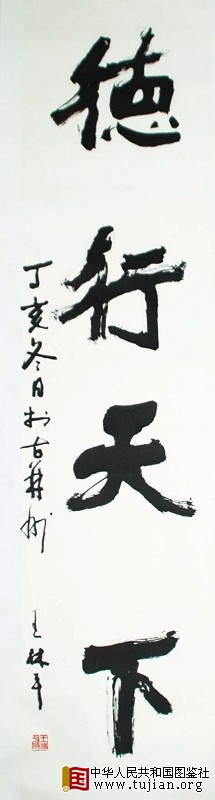 德行天下
丁亥冬日于古莽州
王林平
中华人民共和国图鉴社
www.tujian.org